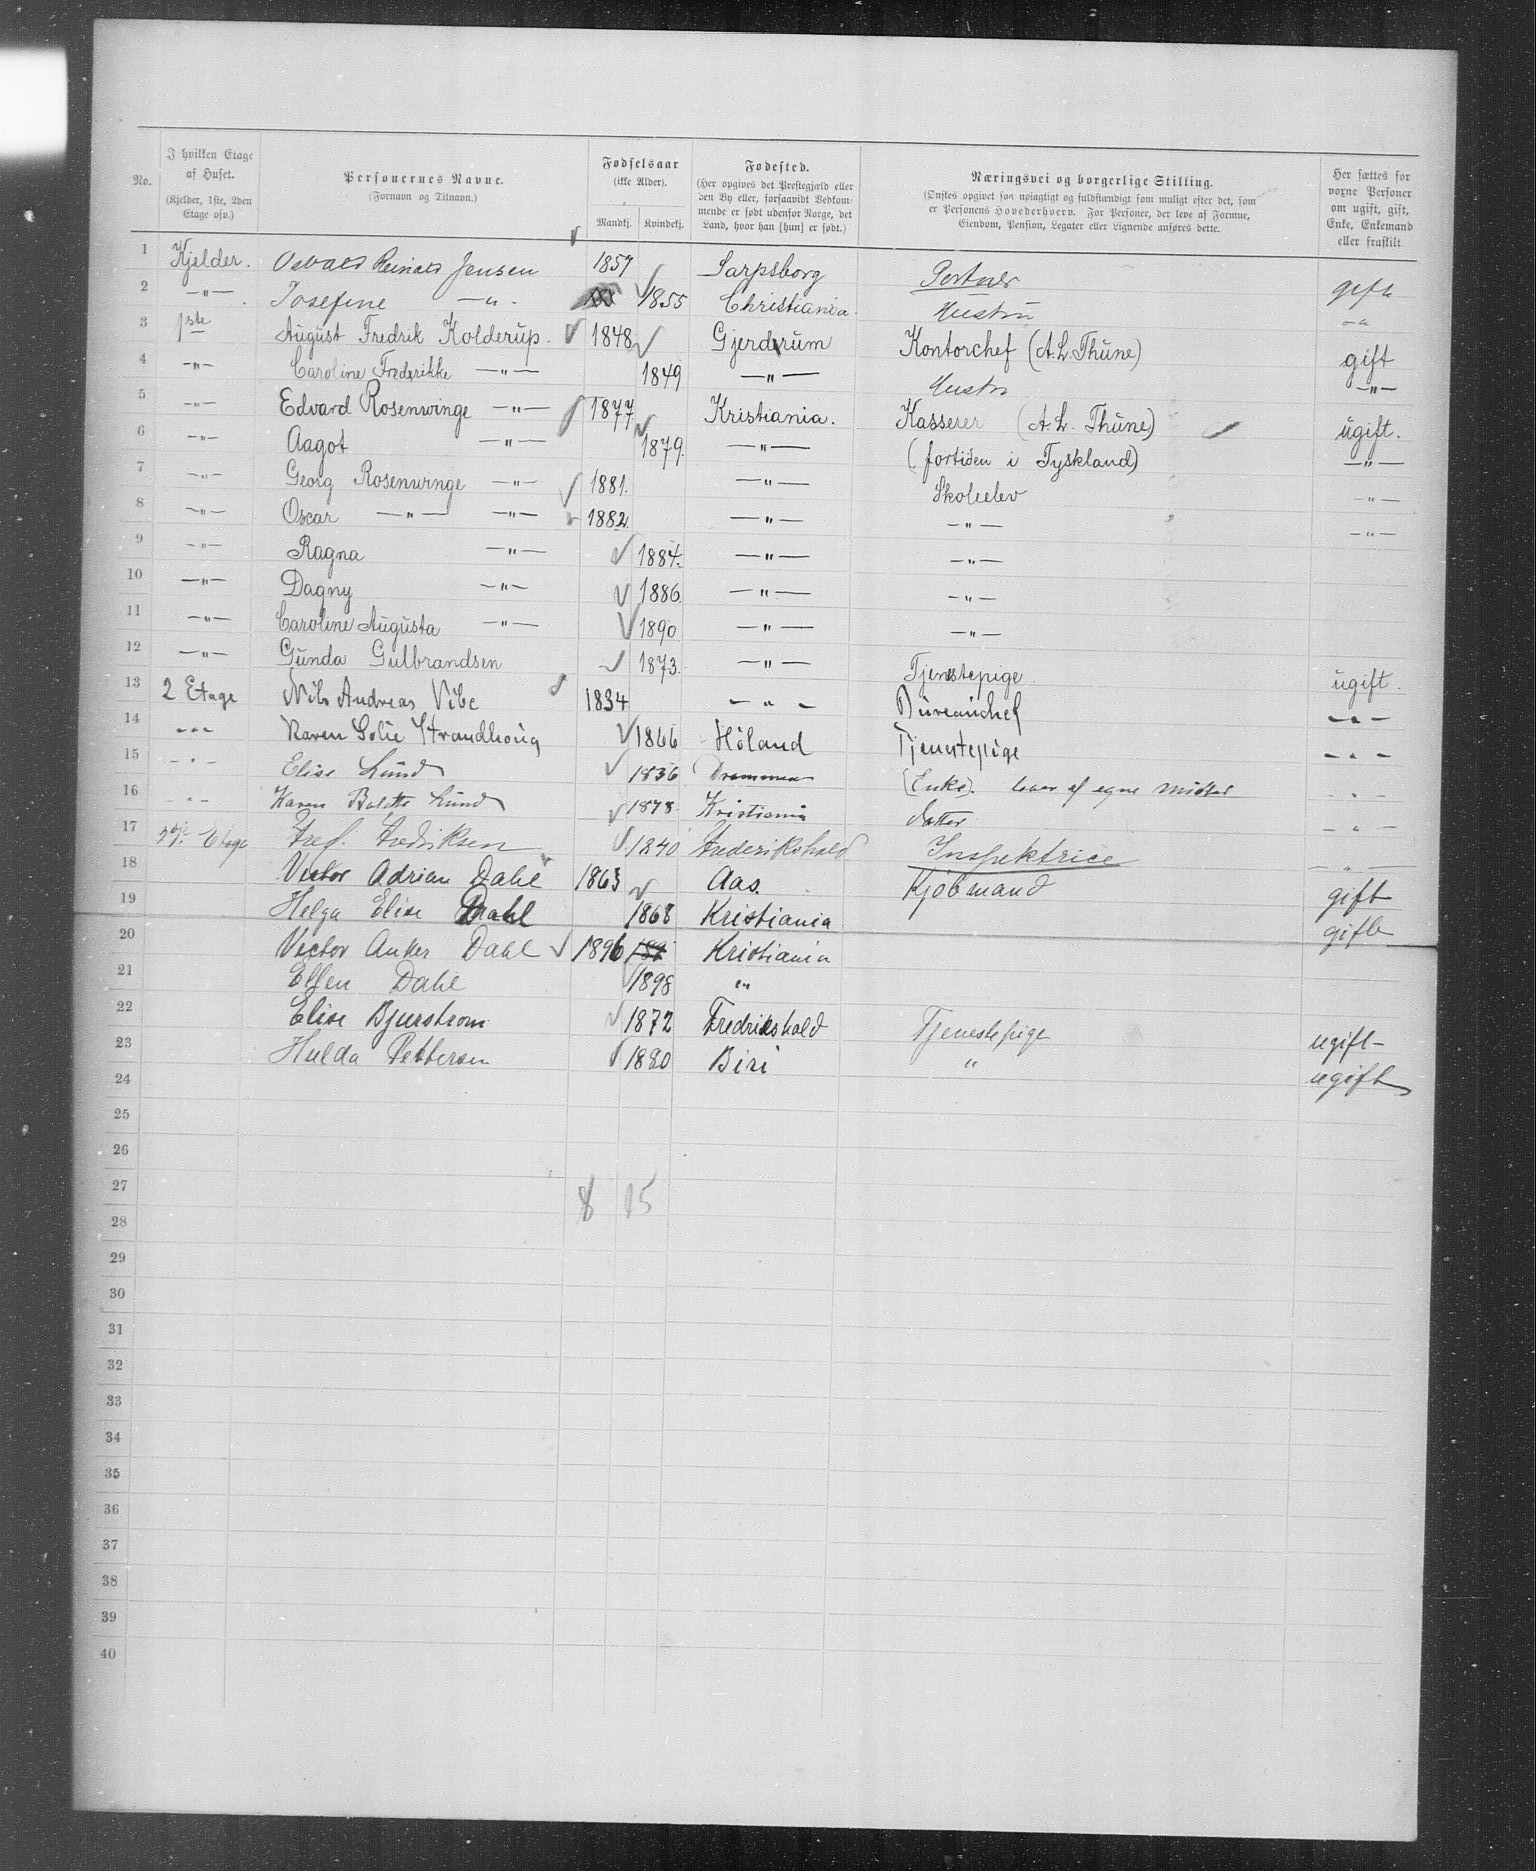 No. | I hvilken Etage af Huset. (Kjelder, 1ste, 2den Etage osv.) | Personernes Navne. (Fornavn og Tilnavn.) | Fødselsaar (ikke Alder). Mandkj. | Kvindekj. | Fødested. (Her opgives det Prestegjæld eller den By eller, forsaavidt Vedkommende er født udenfor Norge, det Land, hvor han [hun] er født.) | Næringsvei og borgerlige Stilling. (Ønskes opgivet saa nøiagtigt og fuldstændigt som muligt efter det, som er Personens Hovederhverv. For Personer, der leve af Formue, Eiendom, Pension, Legater eller Lignende anføres dette. | Her sættes for voxne Personer om ugift, gift, Enke, Enkemand eller fraskilt
1 Kjelder. Osvald Reinald Jensen 1857 Sarpsborg Portner gift
2 —"— Josefine —"— 1855 Christiania. Hustru —"
3 1ste August Fredrik Kolderup. 1848 Gjerdrum Kontorchef (A. L. Thüne) gift
4 —"— Caroline Frederikke —"— 1849 —"— Hustru —"—
5 —"— Edvard Rosenwinge —"— 1877 Kristiania. Kasserer (A. L. Thüne) ugift.
6 —"— Aagot —"— 1879. —"— (fortiden i Tyskland) —"—
7 —"— Georg Rosenwinge —"— 1881. —"— Skoleelev —"—
8 —"— Oscar —"— —"— 1882. —"— —"— —"—
9 —"— Ragna —"— 1884. —"— —"—
10 —"— Dagny —"— 1886. —"— —"—
11 —"— Caroline Augusta —"— 1890 —"— —"—
12 —"— Gunda Gulbrandsen 1873. —"— Tjenestepige. ugift.
13 2 Etage Nils Andreas Vibe 1834 —"— Bureauchef —"—
14 —"— Karen Sofie Strandhoug 1866 Höland Tjenestepige —"—
15 —"— Elise Lund 1836 Drammen (Enke). lever af egne Midler —"—
16 —"— Karen Bolette Lund 1878 Kristiania datter —"—
17 3die Etage Fred. Fredriksen 1840 Frederikshald Inspektrice —"—
18 Victor Adrian Dahl 1863 Aas. Kjøbmand gift
19 Helga Elise Dahl 1868 Kristiania gift
20 Victor Anker Dahl 1896 Kristiania
21 Ellen Dahl 1898 "
22 Elise Bjurstrom 1872 Fredrikshald Tjenestepige ugift
23 Hulda Pettersen 1880 Biri " ugift
24
25
26
27 8 15
28
29
30
31
32
33
34
35
36
37
38
39
40